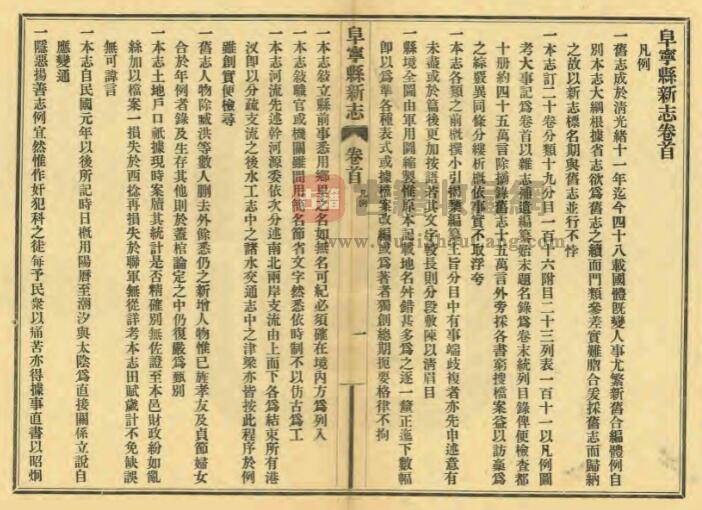 阜寧縣新志卷首
凡例
一舊志成於清光緒十一年迄今四十八載國體旣變人事尤繁新舊合編體例自
別本志大綱根據省志欲爲舊志之續而門類參差實難脗合爰採舊志而歸納
之故以新志標名期與舊志並行不悖
一本志訂二十卷分類十九分目一百十六附目二十三列表一百十一以凡例圖
考大事記爲卷首以雜志補遺編纂始末題名錄爲卷末統列目錄俾便檢查都
十册約四十五萬言除摘錄舊志十五萬言外旁採各書窮搜檔案益以訪稾爲
之綜嚴異同條分縷析概依事實不取浮夸
一本志各類之前槪撰小引揭櫫編纂主旨分目中有事端歧複者亦先申述意有
未盡或於篇後更加按語若其文字較長則分段敷陳以淸眉目
一縣境全圖由軍用圖縮製惟原本記載地名舛錯甚多爲之逐一釐正進下數幅
卽以爲準各種表式或據檔案改編或爲著者獨創總期扼要格律不拘
阜寧縣新志
卷首
凡例
一
一本志敍立縣前事悉用鄕里之名如無名可紀必須確在境內方爲列入
一本志敍職官或機關雖間用簡名節省文字然悉依時制不以仿古爲工
一本志河流先述幹河源委依次分述南北兩岸支流由上而下各爲結束所有港
汊卽以分疏支流之後水工志中之諸水交通志中之津梁亦皆按此程序於例
雖創實便檢尋
一舊志人物除臧洪等數人删去外餘悉仍之新增人物惟已旌孝友及貞節婦女
合於年例者錄及生存其他則於蓋棺論定之中仍復嚴爲甄別
一本志土地戶口祇據現時案牘其統計是否精確別無佐證至本邑財政紛如亂
絲加以檔案一損失於西捻再損失於聯軍無從詳考本志田賦歲計不免缺誤
無可諱言
一本志自民國元年以後所記時日槪用陽曆至潮汐與太陰爲直接關係立說自
應變通
一隱惡揚善志例宜然惟作奸犯科之徒每予民衆以痛苦亦得據事直書以昭炯